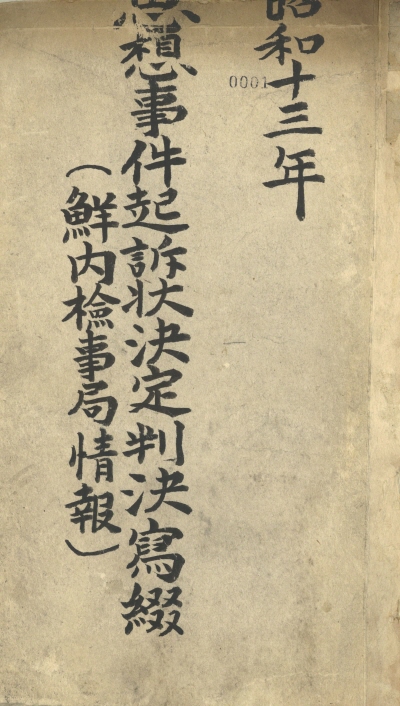 昭和十三年
0001
思想事件起訴状決定判決寫綴
(鮮内檢事局情報)